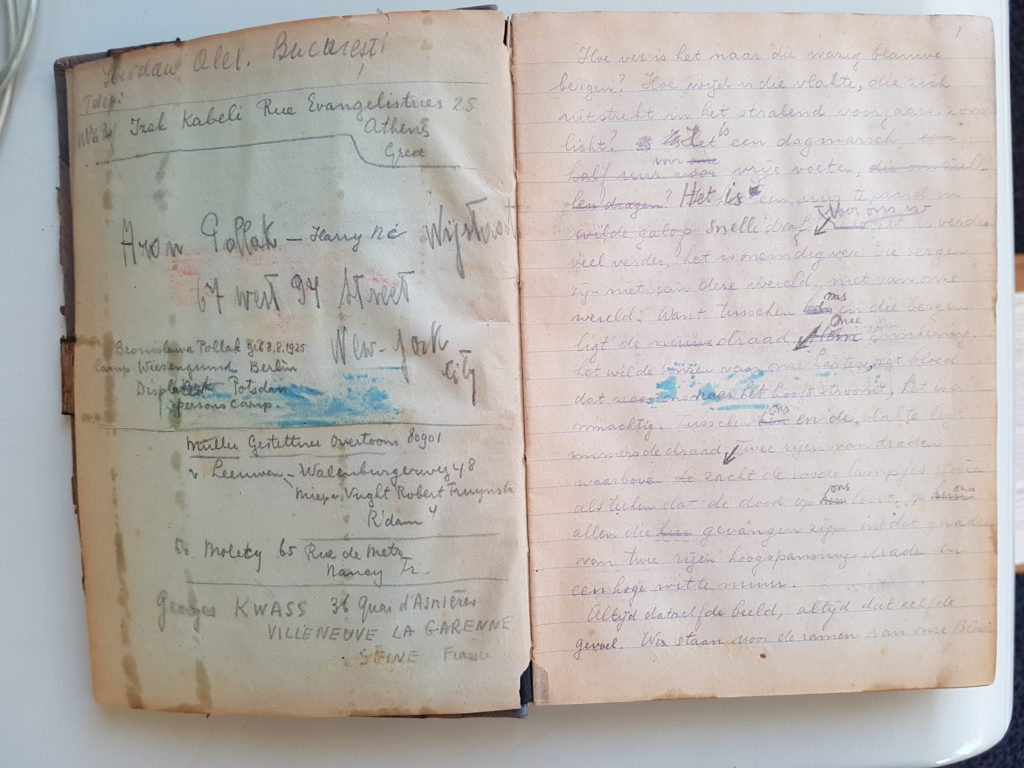 Alex. Bucureşti
Izak Kabeli Rue Evangelistries 25
Athens
Grece
Aron Pollak — Harry né
67 west 94 Street
New-York
City
Bronislawa Pollak g. 68.8.1925
Camp Wiesengrund Berlin
Displaced Potsdam
persons Camp.
Müller Gestettner Overtoom 80901
v Leeuwen — Walenburgerweg 48
Miepe, Vught Robert
R'dam 4
65 Rue de Metz
Nancy Fr.
Georges KWASS 36 Quai d'Asnières
VILLENEUVE LA GARENNE
SEINE France
1
Hoe ver is het naar die wazig blauwe
bergen? Hoe wijd is die vlakte, die zich
uitstrekt in het stralend voorjaarszon
licht? Het is een dagmarsch,
half uur voor vrije voeten,
len dragen? Het is een uur te paard in
wilde galop snelle draf. Voor ons is het is verder
veel verder, het is oneindig ver. Die bergen
zijn niet van deze wereld, niet van onze
wereld. Want tusschen ons en die bergen
ligt de draad.
Onze
het wilde van onze harten, het bloed
dat naar het hoofd stroomt, het is
onmachtig. Tusschen ons en de vlakte ligt
immers de draad. Twee rijen van draden
waarboven zacht de roode lampjes
als teken dat de dood op ons loert, op ons
allen die hier gevangen zijn in dit
van twee rijen hoogspanningsdraden en
een hoge witte muur.
Altijd datzelfde beeld, altijd dat zelfde
gevoel. We staan voor de ramen van onze Blok